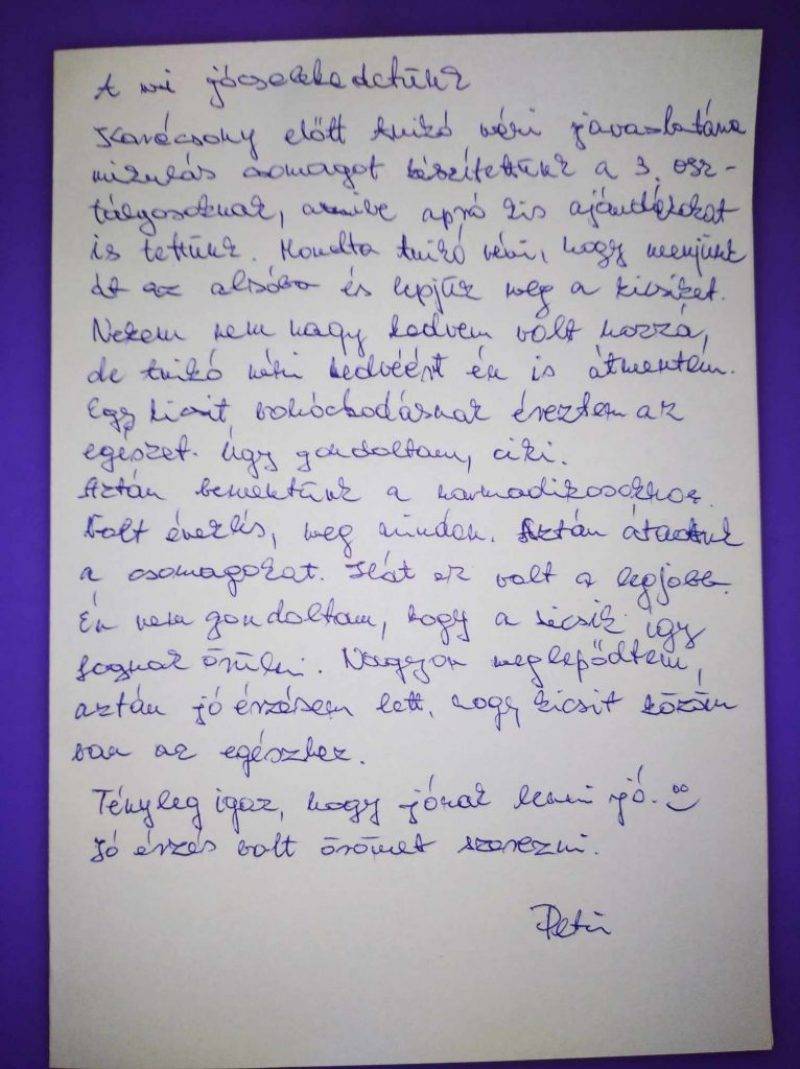 A mi jócselekedetünk
Karácsony előtt Anikó néni javaslatára
mikulás csomagot készítettünk a 3. osz-
tályosoknak, amibe apró kis ajándékokat
is tettünk. Mondta Anikó néni, hogy menjünk
át az alsóba és lepjük meg a kicsiket.
Nekem nem nagy kedvem volt hozzá,
de Anikó néni kedvéért én is átmentem.
Egy kicsit bohóckodásnak éreztem az
egészet. Úgy gondoltam, ciki.
Aztán bementünk a harmadikosokhoz.
Volt éneklés, meg minden. Aztán átadtuk
a csomagokat. Hát ez volt a legjobb.
Én nem gondoltam, hogy a kicsik így
fognak örülni. Nagyon meglepődtem,
aztán jó érzésem lett, hogy kicsit közöm
van az egészhez.
Tényleg igaz, hogy jónak lenni jó.
Jó érzés volt örömet szerezni.
Peti